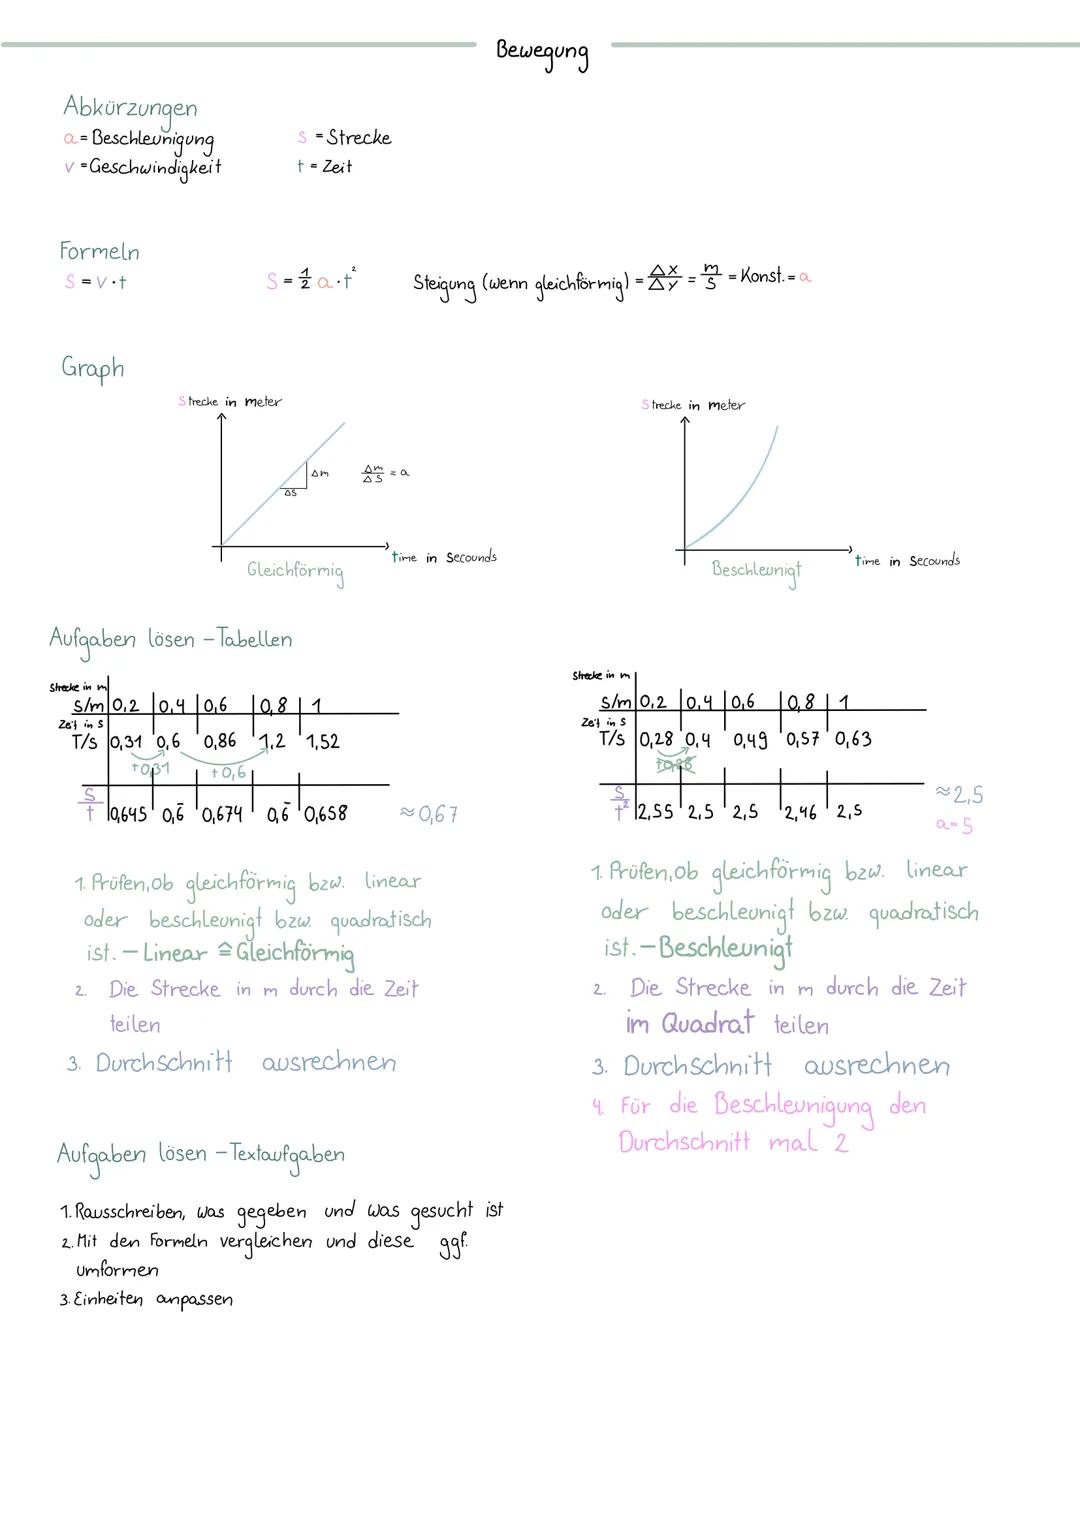 Bewegung
Abkürzungen
a = Beschleunigung
s = Strecke
v = Geschwindigkeit
t = Zeit
Formeln
s = v · t
s = 1/2 a · t²
Steigung (wenn gleichförmig) = Δx/Δy = m/s = Konst. = a
Graph
Strecke in meter
Δm
Δs
Δm/Δs = a
time in secounds
Gleichförmig
Strecke in meter
time in secounds
Beschleunigt
Aufgaben lösen – Tabellen
Strecke in m
s/m 0,2 0,4 0,6 0,8 1
Zeit in s
T/s 0,31 0,6 0,86 1,2 1,52
+0,31 +0,6
s/t 0,645 0,6̅ 0,674 0,6̅ 0,658 ≈ 0,67
1. Prüfen, ob gleichförmig bzw. linear
oder beschleunigt bzw. quadratisch
ist. – Linear ≙ Gleichförmig
2. Die Strecke in m durch die Zeit
teilen
3. Durchschnitt ausrechnen
Strecke in m
s/m 0,2 0,4 0,6 0,8 1
Zeit in s
T/s 0,28 0,4 0,49 0,57 0,63
+0,28
s/t² 2,55 2,5 2,5 2,46 2,5 ≈ 2,5
a = 5
1. Prüfen, ob gleichförmig bzw. linear
oder beschleunigt bzw. quadratisch
ist. – Beschleunigt
2. Die Strecke in m durch die Zeit
im Quadrat teilen
3. Durchschnitt ausrechnen
4. Für die Beschleunigung den
Durchschnitt mal 2
Aufgaben lösen – Textaufgaben
1. Rausschreiben, was gegeben und was gesucht ist
2. Mit den Formeln vergleichen und diese ggf.
umformen
3. Einheiten anpassen